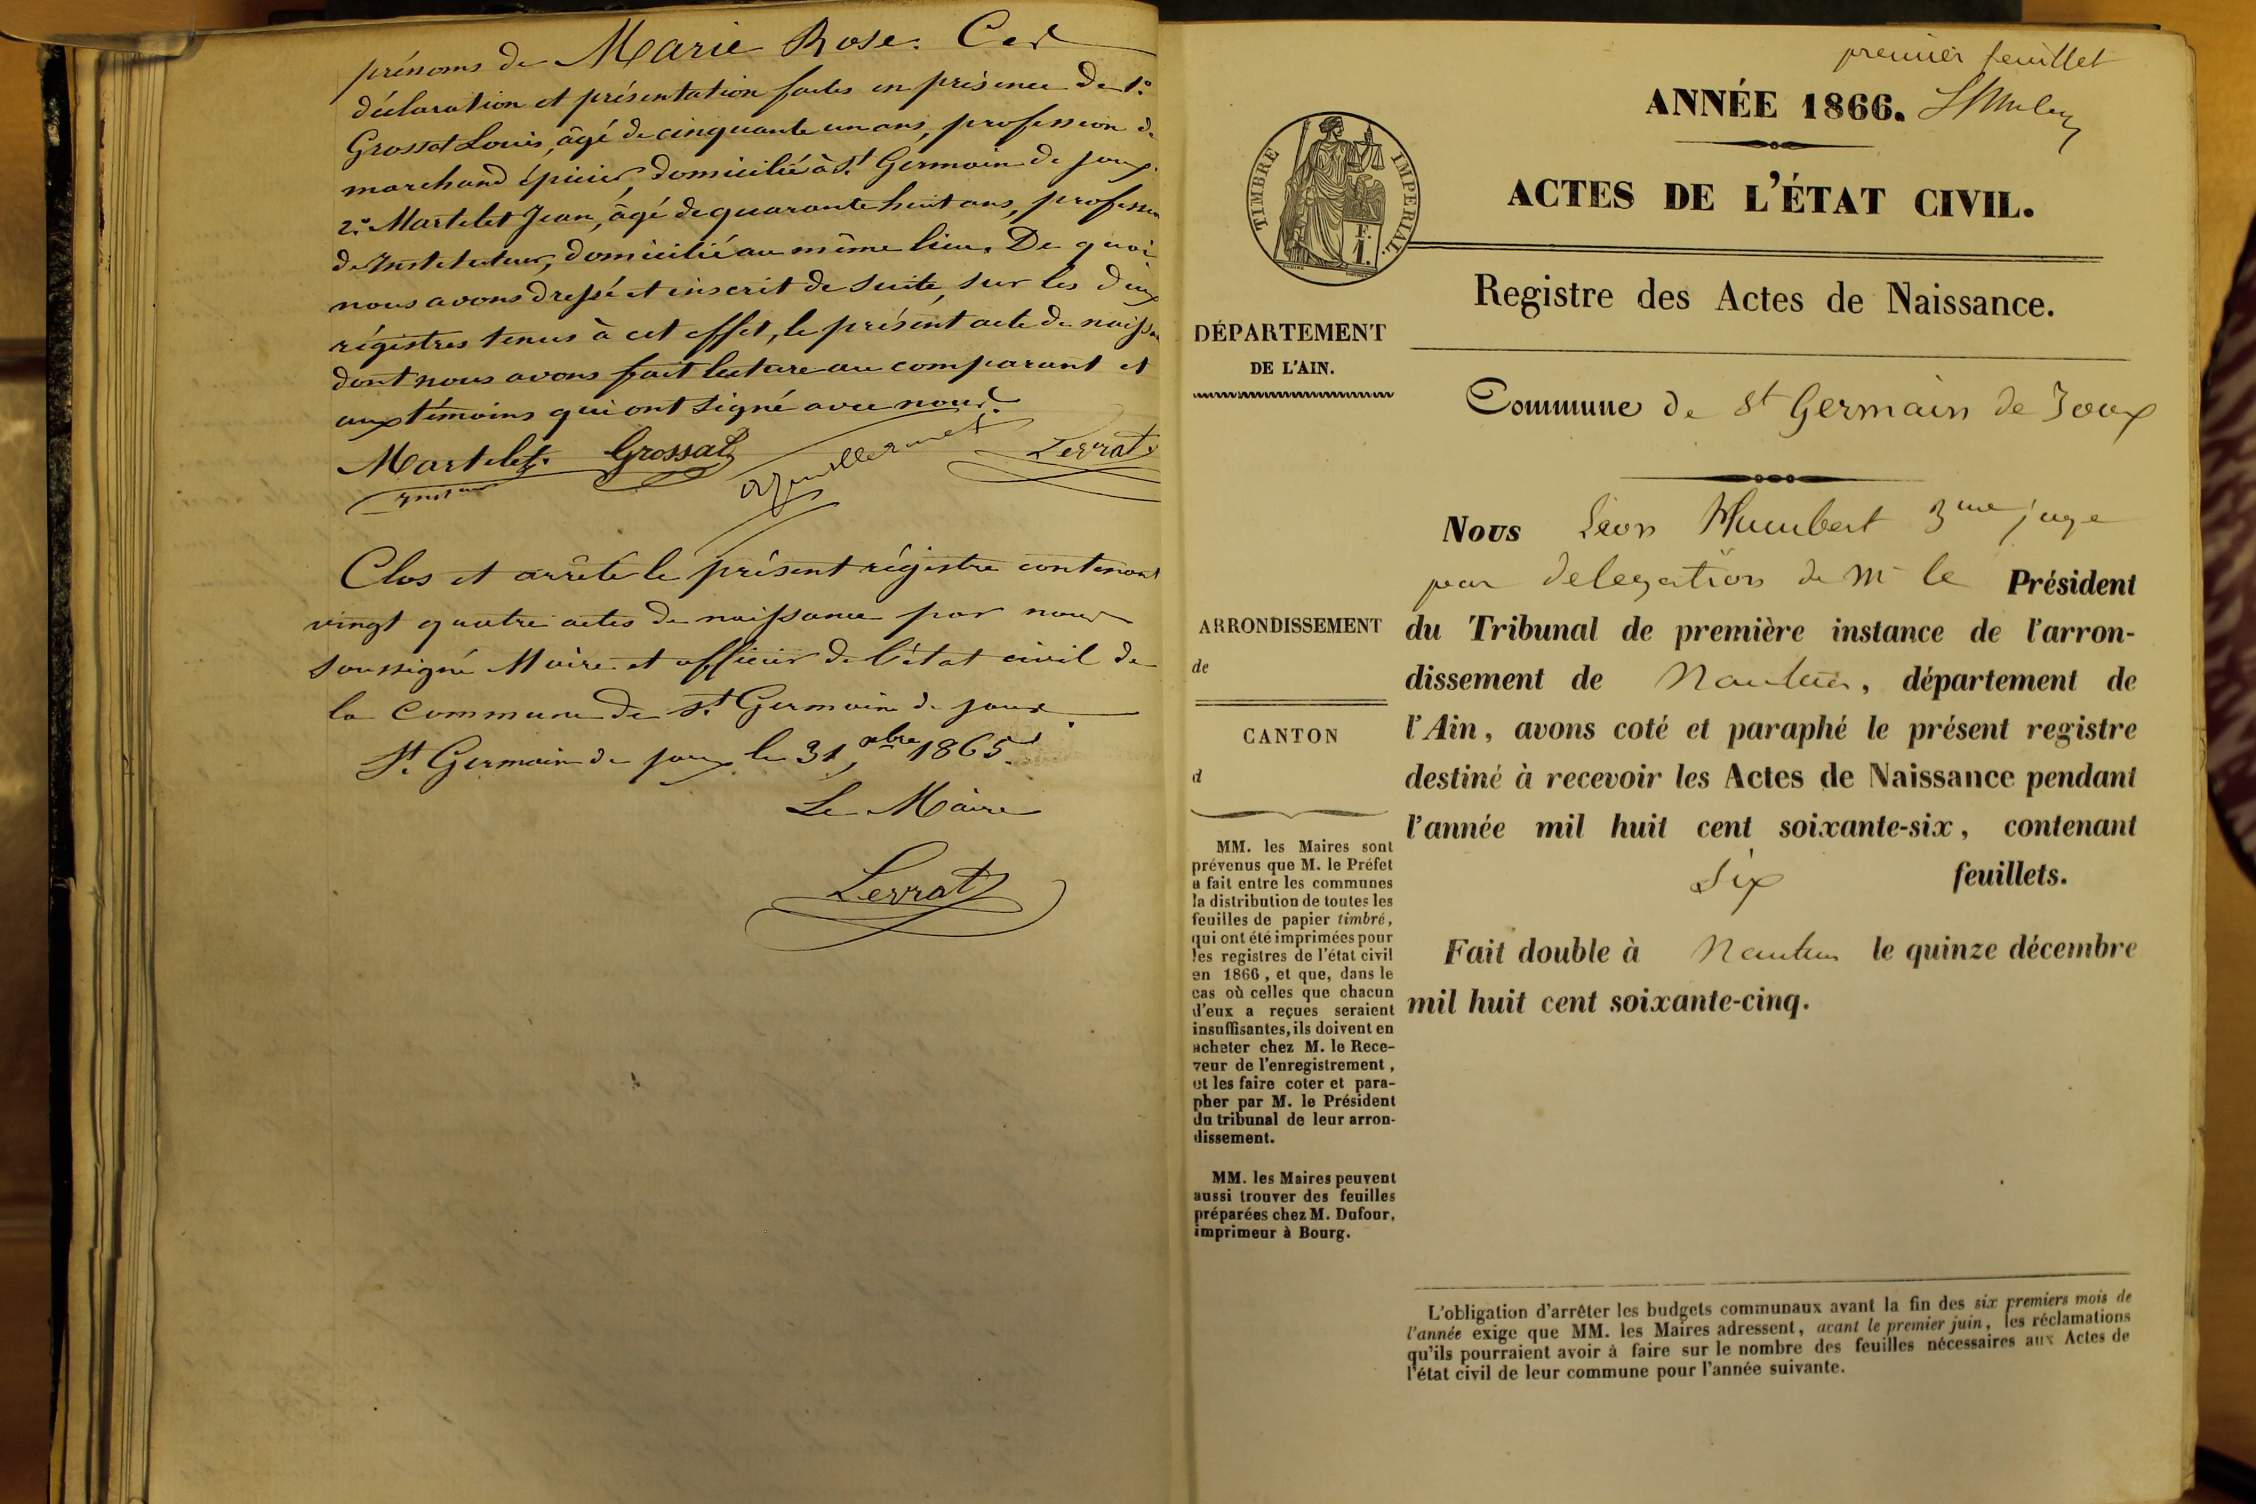 prénoms de Marie Rose. Ces
déclaration et présentation faites en présence de 1°.
Grossat Louis, âgé de cinquante un ans, profession de
marchand épicier, domicilié à St. Germain de joux.
2°. Martelet Jean, âgé de quarante huit ans, profession
de Instituteur, domicilié au même lieu. De quoi
nous avons dressé et inscrit de suite, sur les deux
régistres tenus à cet effet, le présent acte de naissa
dont nous avons fait lecture au comparant et
aux témoins qui ont signé avec nous.
Martelet. Grossat Guillermet Lerrat
Clos et arrêté le présent régistre contenant
vingt quatre actes de naissance par nous
soussigné Maire et officier de l'état civil de
la commune de St. Germain de joux.
St. Germain de joux le 31, xbre 1865.
Le Maire
Lerrat
premier feuillet
ANNÉE 1866.
TIMBRE IMPÉRIAL.
F.
1.
ACTES DE L'ÉTAT CIVIL.
Registre des Actes de Naissance.
DÉPARTEMENT
DE L'AIN.
Commune de St Germain de Joux
Nous Léon Humbert 3me juge
par délégation de Mr le Président
du Tribunal de première instance de l'arron-
dissement de Nantua, département de
l'Ain, avons coté et paraphé le présent registre
destiné à recevoir les Actes de Naissance pendant
l'année mil huit cent soixante-six, contenant
Six feuillets.
Fait double à Nantua le quinze décembre
mil huit cent soixante-cinq.
ARRONDISSEMENT
de
CANTON
d
MM. les Maires sont
prévenus que M. le Préfet
a fait entre les communes
la distribution de toutes les
feuilles de papier timbré,
qui ont été imprimées pour
les registres de l'état civil
en 1866, et que, dans le
cas où celles que chacun
d'eux a reçues seraient
insuffisantes, ils doivent en
acheter chez M. le Rece-
veur de l'enregistrement,
et les faire coter et para-
pher par M. le Président
du tribunal de leur arron-
dissement.
MM. les Maires peuvent
aussi trouver des feuilles
préparées chez M. Dufour,
imprimeur à Bourg.
L'obligation d'arrêter les budgets communaux avant la fin des six premiers mois de
l'année exige que MM. les Maires adressent, avant le premier juin, les réclamations
qu'ils pourraient avoir à faire sur le nombre des feuilles nécessaires aux Actes de
l'état civil de leur commune pour l'année suivante.